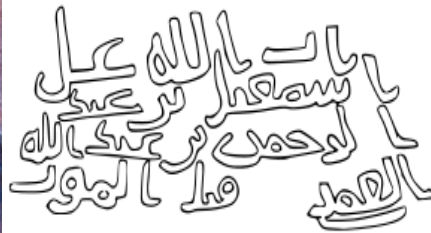 تاب الله عل
ا اسمعيل بن عبد
الرحمن بن عبد الله
العمري قبل الموت